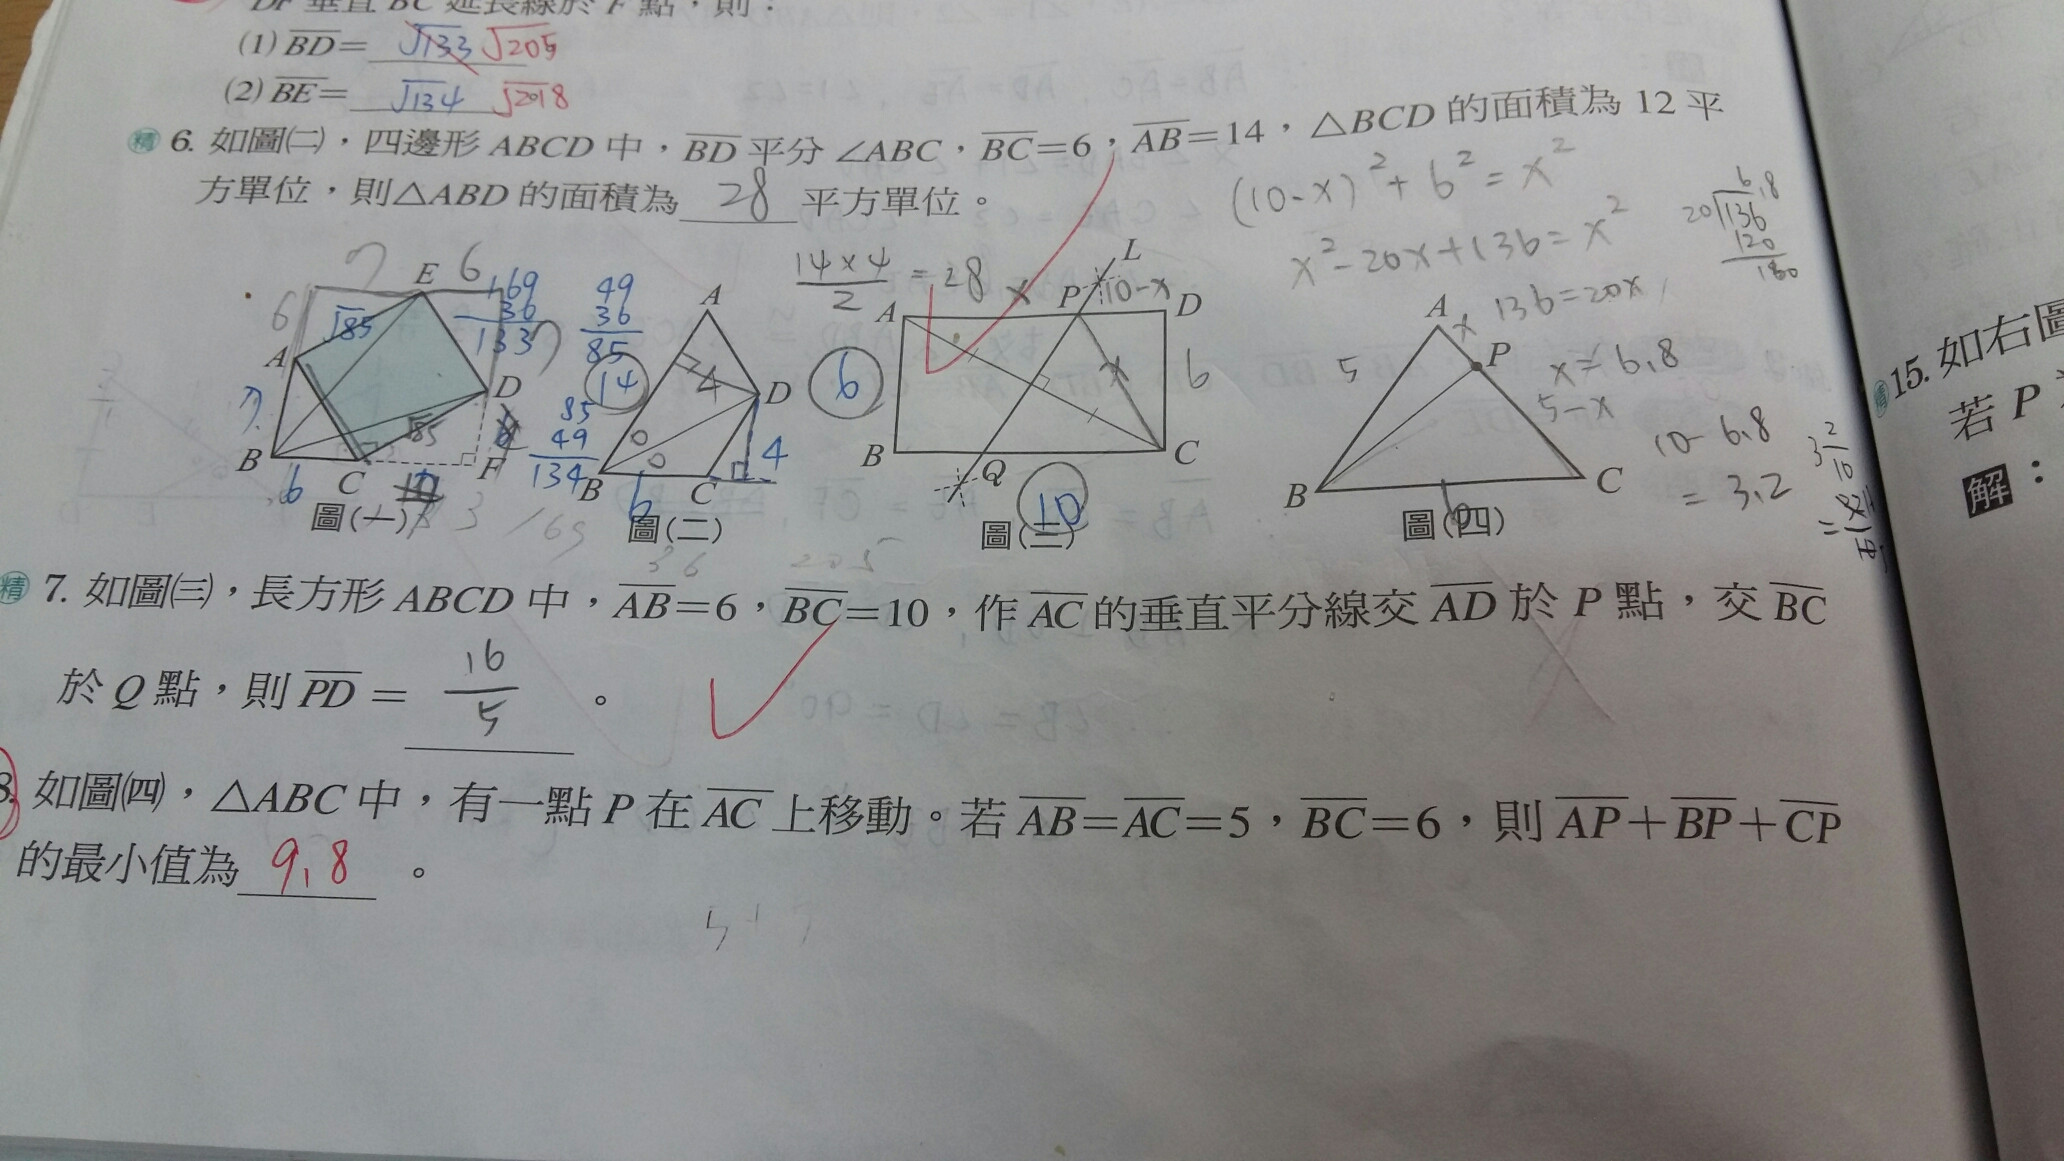 DF 垂直 BC 延長線於 F 點，則：
(1) BD= √133 √205
(2) BE= √134 √218
精 6. 如圖㈡，四邊形 ABCD 中，BD 平分 ∠ABC，BC=6，AB=14，△BCD 的面積為 12 平
方單位，則△ABD 的面積為 28 平方單位。
(10-x)²+6²=x²
x²-20x+136=x²
136=20x
x=6.8
10-6.8
=3.2
6.8
20 136
120
160
14×4
2
=28
7 E 6
6 √85 A
7 B 6 C D F
√85
169
36
133
49
36
85
85
49
134
圖(一)
3 169
36 205
A 14 4 D 4
B 6 C
圖(二)
L
A x P 10-x D
6 x 6
B Q C
10
圖(三)
A x P
5 5-x
B 6 C
圖(四)
3 2
10
精 7. 如圖㈢，長方形 ABCD 中，AB=6，BC=10，作 AC 的垂直平分線交 AD 於 P 點，交 BC
於 Q 點，則 PD = 16
5 。
8. 如圖㈣，△ABC 中，有一點 P 在 AC 上移動。若 AB=AC=5，BC=6，則 AP+BP+CP
的最小值為 9.8 。
精 15. 如右圖
若 P
解：